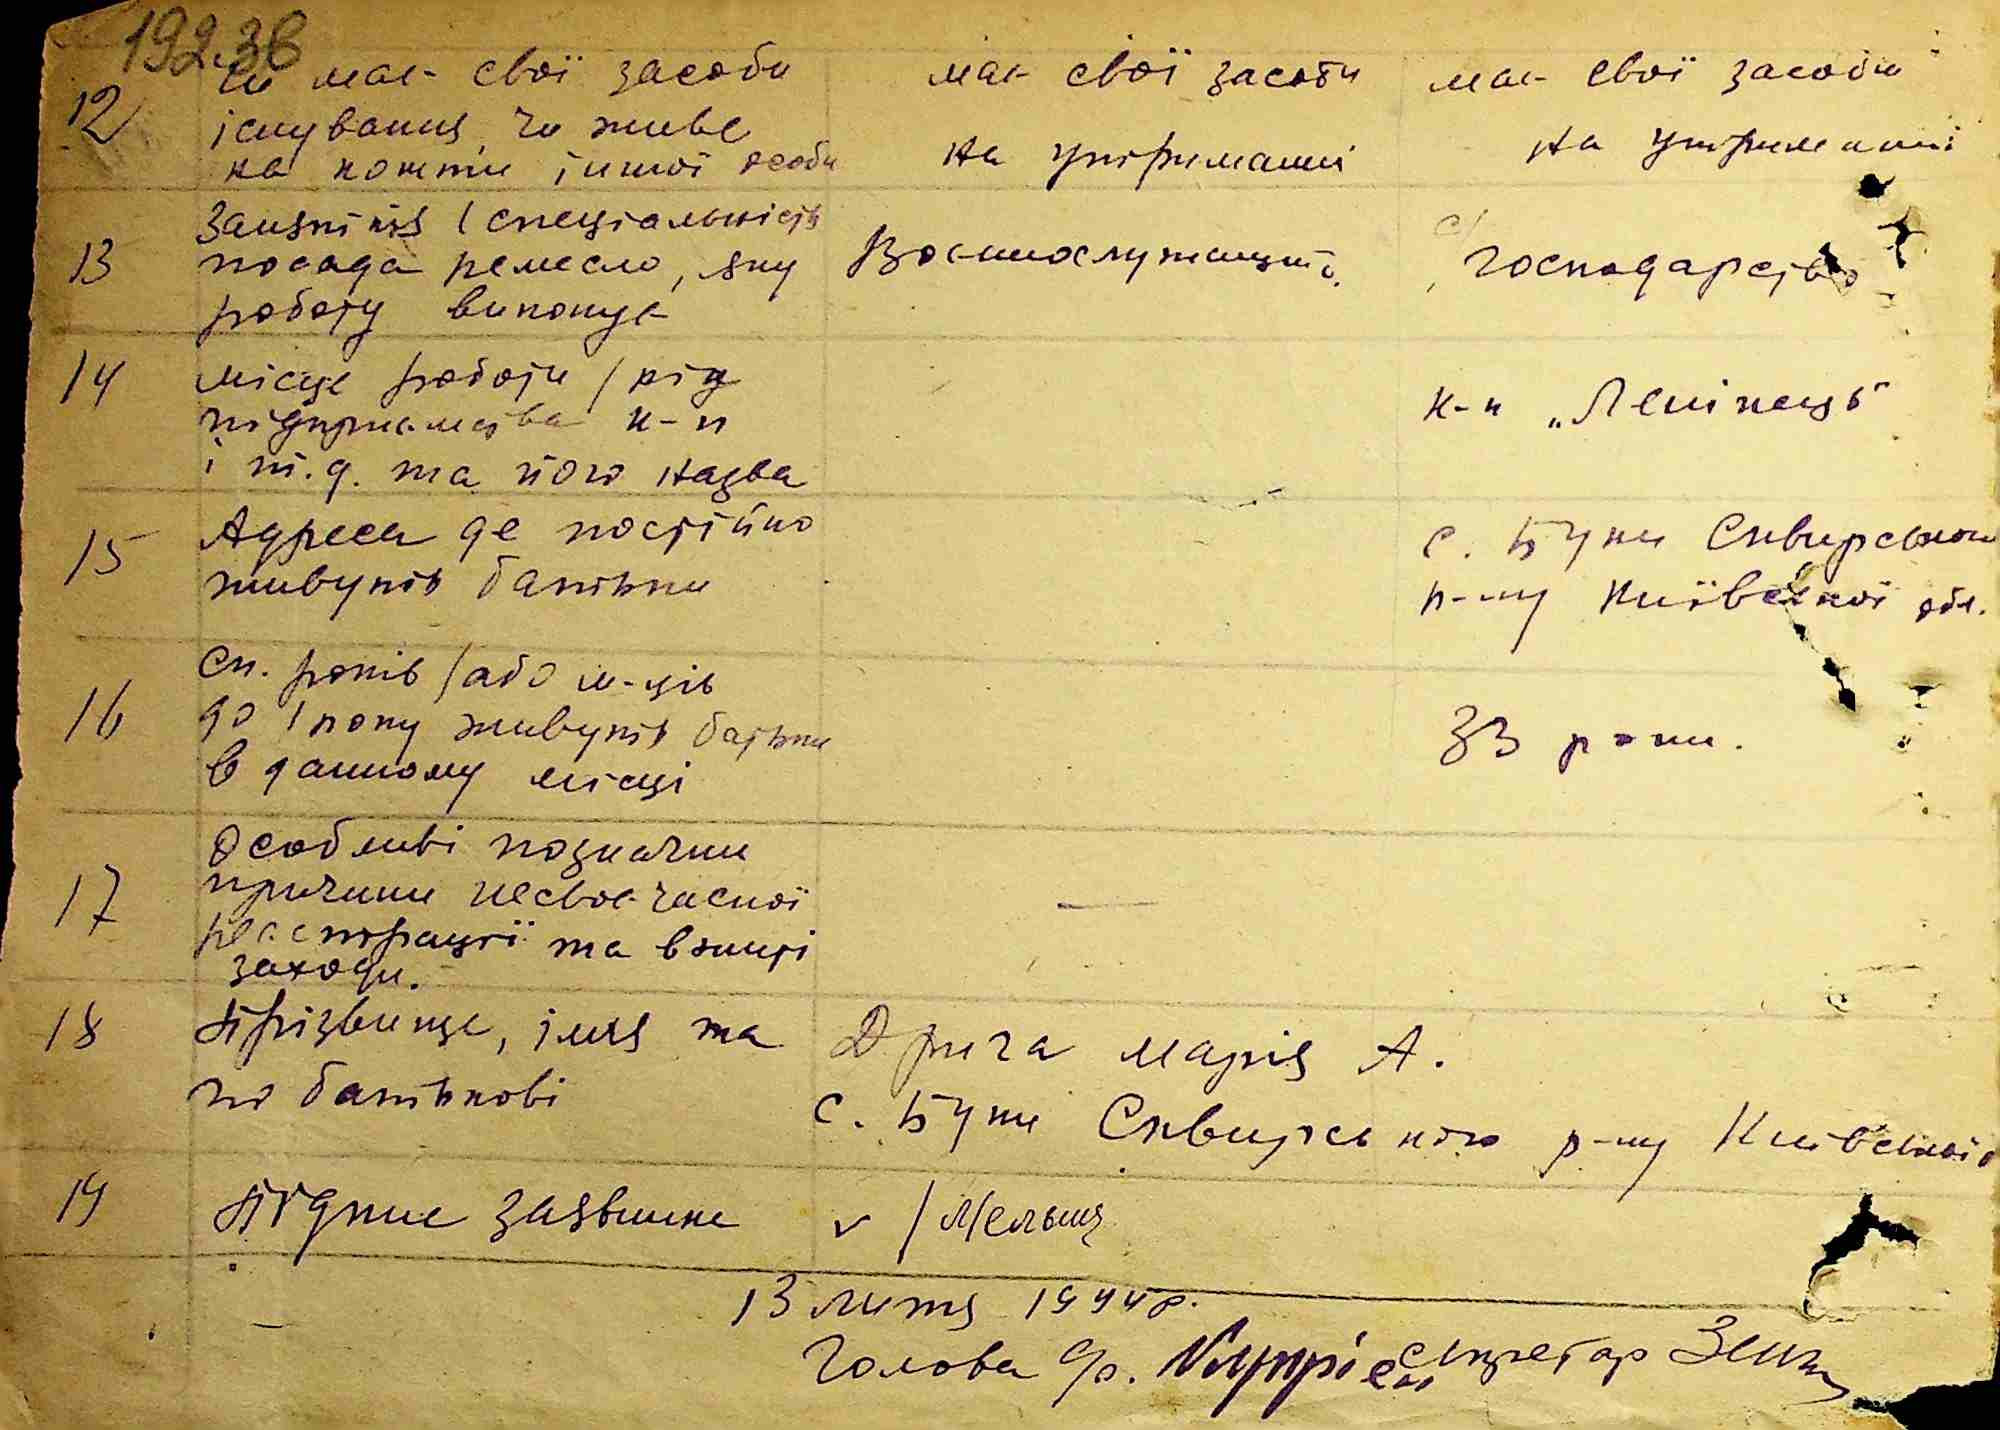 192.зв
12 Чи має свої засоби має свої засоби має свої засоби
існування, чи живе
на кошти іншої особи на утриманні на утриманні
Заняття (спеціальність
13 посада ремесло, яку Воєннослужащий. с/господарство
роботу виконує
14 місце роботи /під
підприємства к-п к-п „Ленінець“
і т.д. та його назва
15 Адреса де постійно с. Буки Сквирського
живуть батьки р-ну Київської обл.
Ск. років /або м-ців
16 до 1 року живуть батьки 33 роки.
в данному місці
Особливі позначки
17 причини несвоєчасної —
реєстрації та вжиті
заходи.
18 Прізвище, імя та Дрига Марія А.
по батькові с. Буки Сквирського р-ну Київської
19 Підпис заявника v /Мельник
13 лютя 1944р.
Голова с/р. секретар